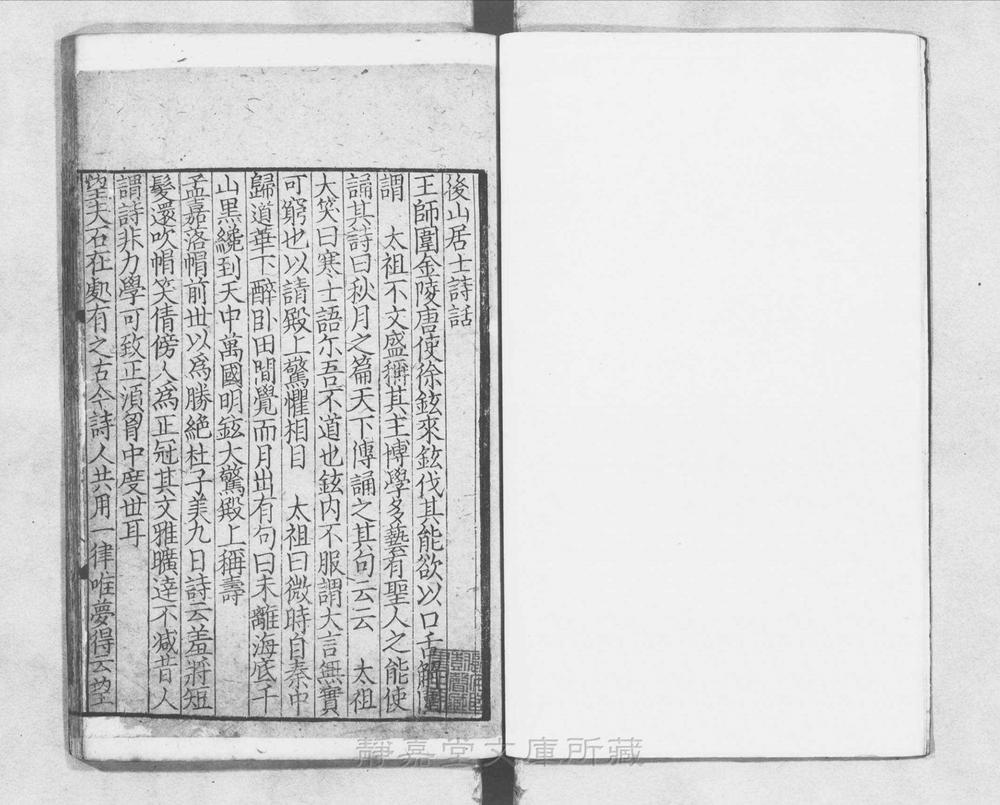 後山居士詩話
王師圍金陵唐使徐鉉來鉉伐其能欲以口舌解圍
謂　太祖不文盛稱其主博學多藝有聖人之能使
誦其詩曰秋月之篇天下傳誦之其句云云　太祖
大笑曰寒士語尓吾不道也鉉内不服謂大言無實
可窮也以請殿上驚懼相目　太祖曰微時自秦中
歸道華下醉卧田間覺而月出有句曰未離海底千
山黑纔到天中萬國明鉉大驚殿上稱壽
孟嘉落帽前世以爲勝絶杜子美九日詩云羞將短
髮還吹帽笑倩傍人為正冠其文雅曠達不减昔人
謂詩非力學可致正湏胷中度世耳
望夫石在處有之古今詩人共用一律唯夢得云望
静嘉堂文庫所藏